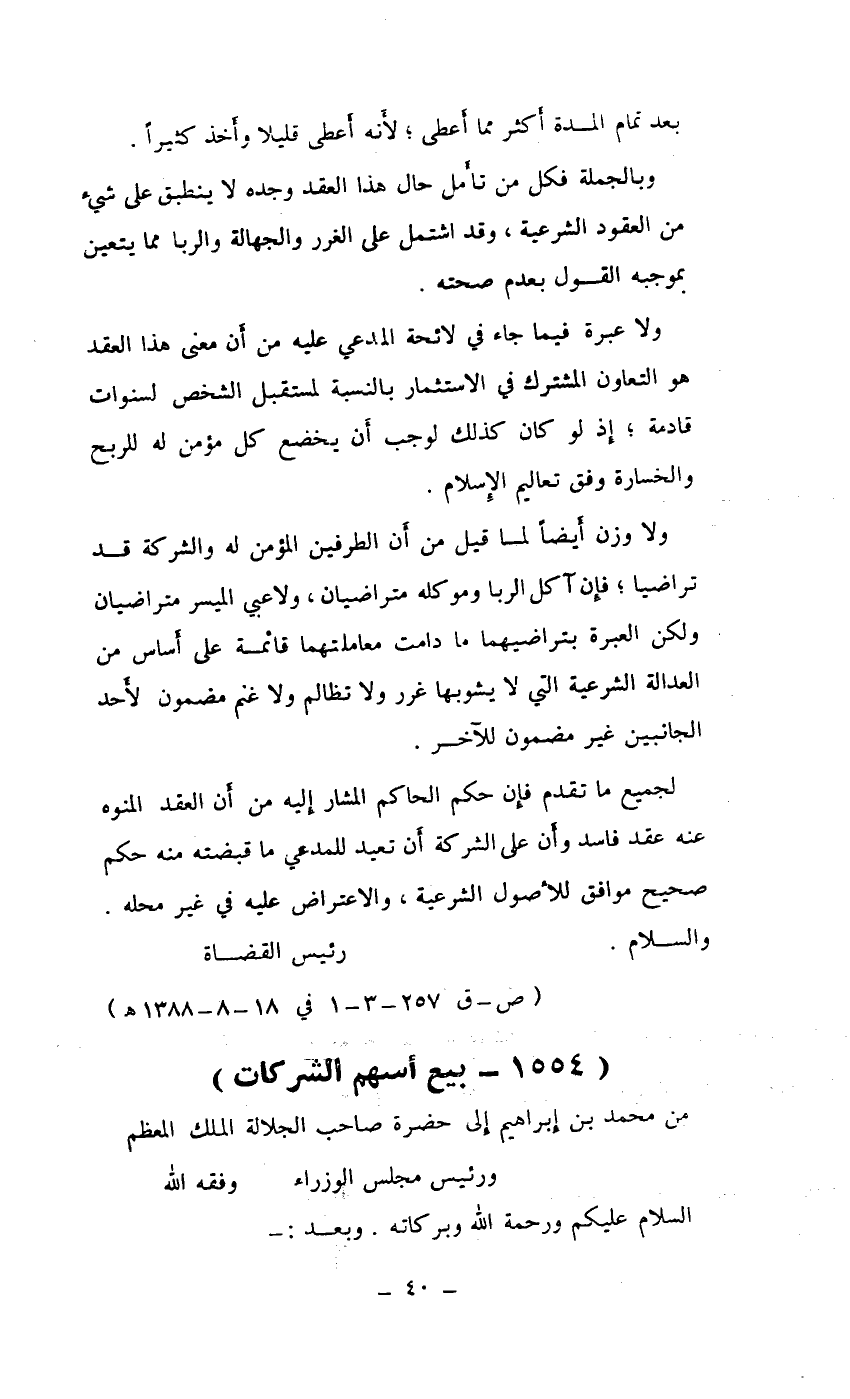 بعد تمام المـدة أكثر مما أعطى ؛ لأنه أعطى قليلا وأخذ كثيراً .
وبالجملة فكل من تأمل حال هذا العقد وجده لا ينطبق على شيء
من العقود الشرعية ، وقد اشتمل على الغرر والجهالة والربا مما يتعين
بموجبه القـول بعدم صحته .
ولا عبرة فيما جاء في لائحة المدعي عليه من أن معنى هذا العقد
هو التعاون المشترك في الاستثمار بالنسبة لمستقبل الشخص لسنوات
قادمة ؛ إذ لو كان كذلك لوجب أن يخضع كل مؤمن له للربح
والخسارة وفق تعاليم الإسلام .
ولا وزن أيضاً لمـا قيل من أن الطرفين المؤمن له والشركة قـد
تراضيا ؛ فإن آكل الربا وموكله متراضيان ، ولاعبي الميسر متراضيان
ولكن العبرة بتراضيهما ما دامت معاملتهما قائمـة على أساس من
العدالة الشرعية التي لا يشوبها غرر ولا تظالم ولا غنم مضمون لأحد
الجانبين غير مضمون للآخـر .
لجميع ما تقدم فإن حكم الحاكم المشار إليه من أن العقد المنوه
عنه عقد فاسد وأن على الشركة أن تعيد للمدعي ما قبضته منه حكم
صحيح موافق للأصول الشرعية ، والاعتراض عليه في غير محله .
والسـلام . رئيس القضـاة
( ص–ق ٢٥٧–٣–١ في ١٨–٨–١٣٨٨ه )
( ١٥٥٤ – بيع أسهم الشركات )
من محمد بن إبراهيم إلى حضرة صاحب الجلالة الملك المعظم
ورئيس مجلس الوزراء وفقه الله
السلام عليكم ورحمة الله وبركاته . وبعـد :–
– ٤٠ –